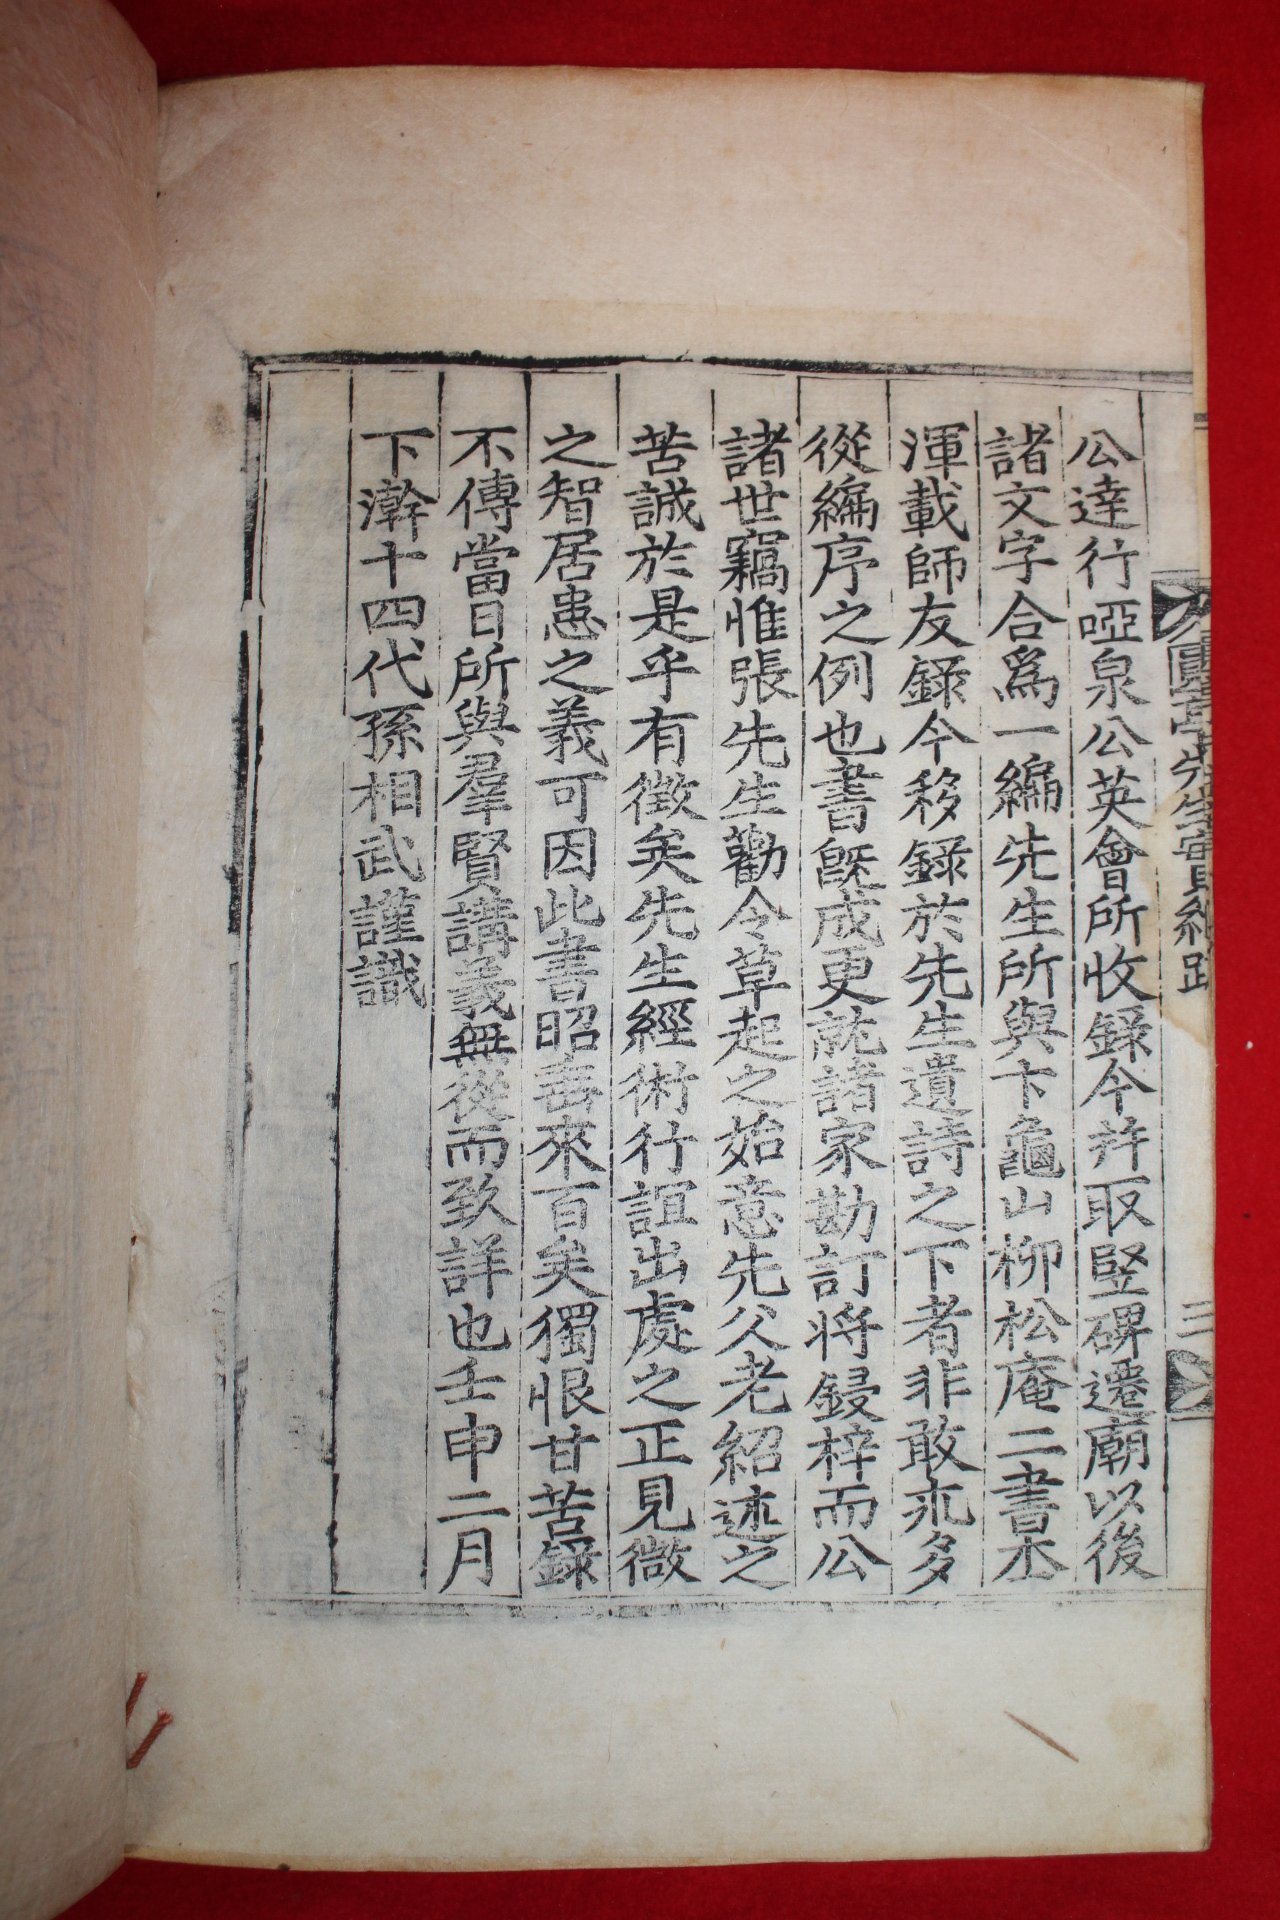 公達行啞泉公英會所收錄今幷取竪碑遷廟以後
諸文字合爲一編先生所與卞龜山柳松庵二書
渾載師友錄今移錄於先生遺詩之下者非敢求多
從編序之例也書旣成更就諸家勘訂將鋟梓而公
諸世竊惟張先生勸令草起之始意先父老紹述之
苦誠於是乎有徵矣先生經術行誼出處之正見微
之智居患之義可因此書昭垂來百矣獨恨甘苦錄
不傳當日所與羣賢講義無從而致詳也壬申二月
下澣十四代孫相武謹識
先生實紀
三